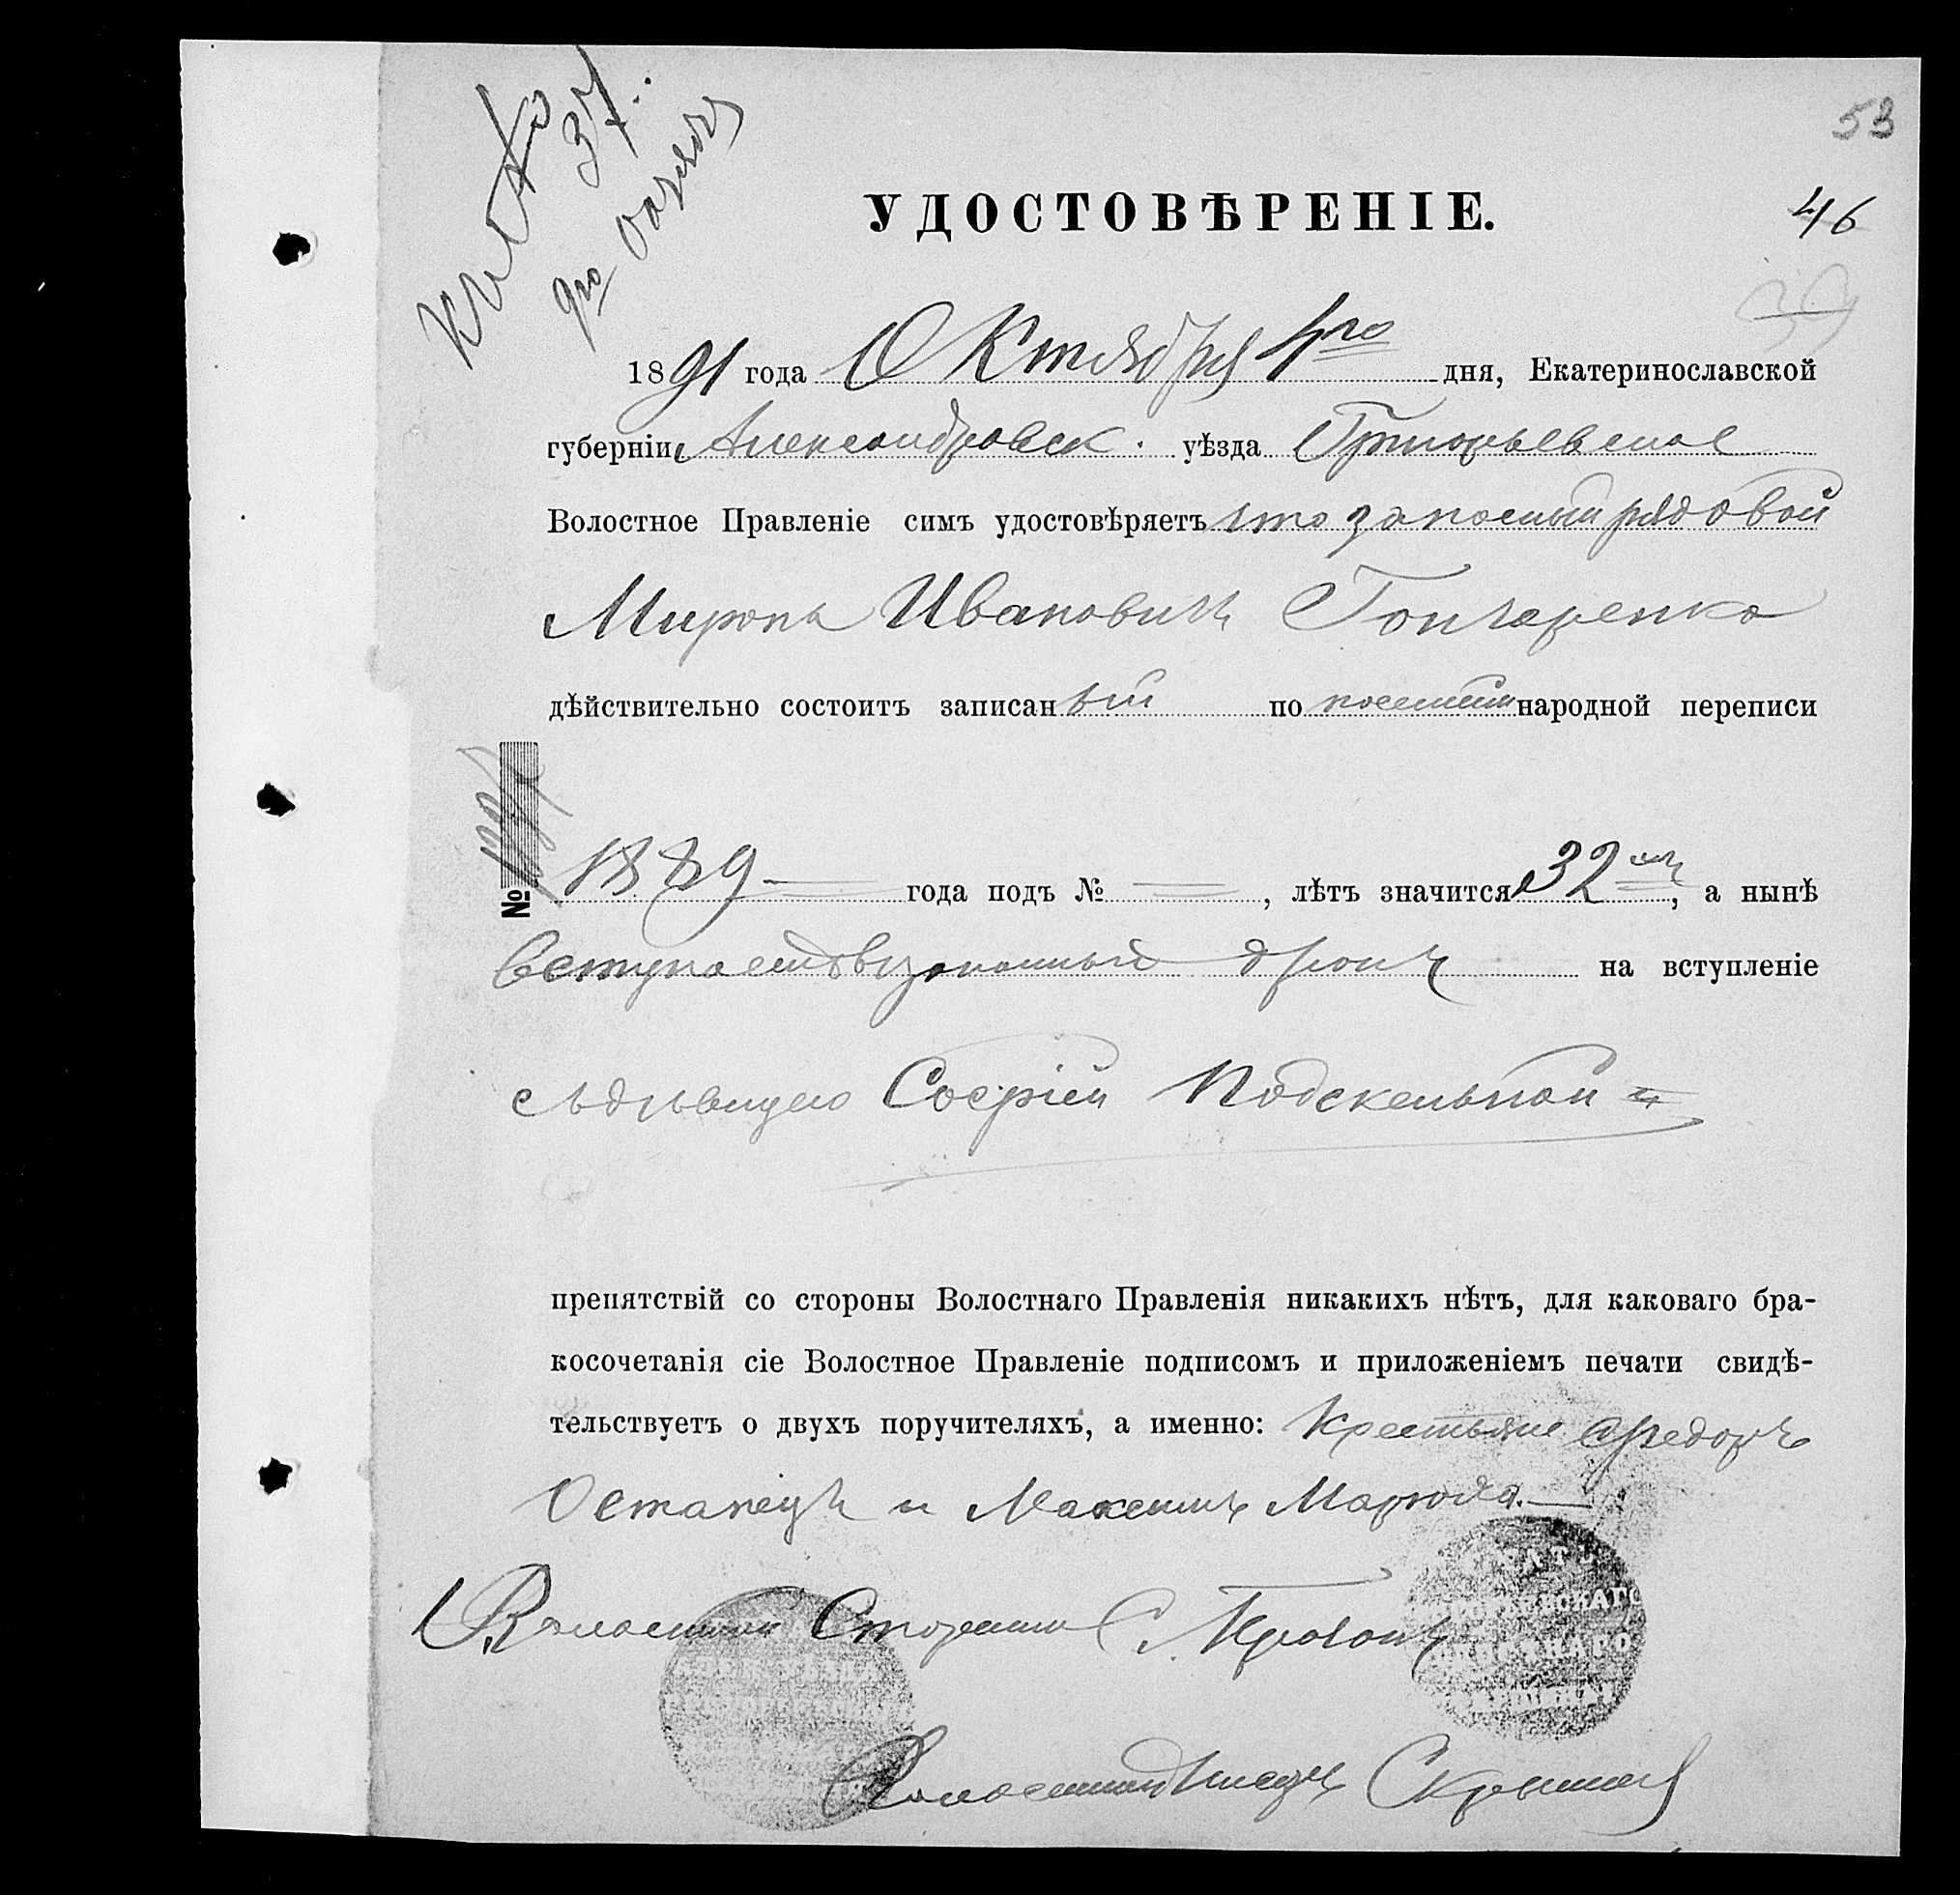 53
УДОСТОВѢРЕНІЕ.
46
39
1891 года Октября 4го дня, Екатеринославской
губерніи Александровск. уѣзда Григорьевское
Волостное Правленіе симъ удостовѣряетъ что запасный рядовой
Миронъ Ивановичъ Гончаренко
дѣйствительно состоитъ записанный по посемейн народной переписи
№
1889 года подъ № , лѣтъ значится 32, а нынѣ
вступаетъ въ законный бракъ на вступленіе
съ дѣвицею Софіей Подскельной
препятствій со стороны Волостнаго Правленія никакихъ нѣтъ, для каковаго бра-
косочетанія сіе Волостное Правленіе подписомъ и приложеніемъ печати свидѣ-
тельствуетъ о двухъ поручителяхъ, а именно: Крестьяне Федоръ
Остапецъ и Максимъ
Волостной Старшина
Волостной Писарь